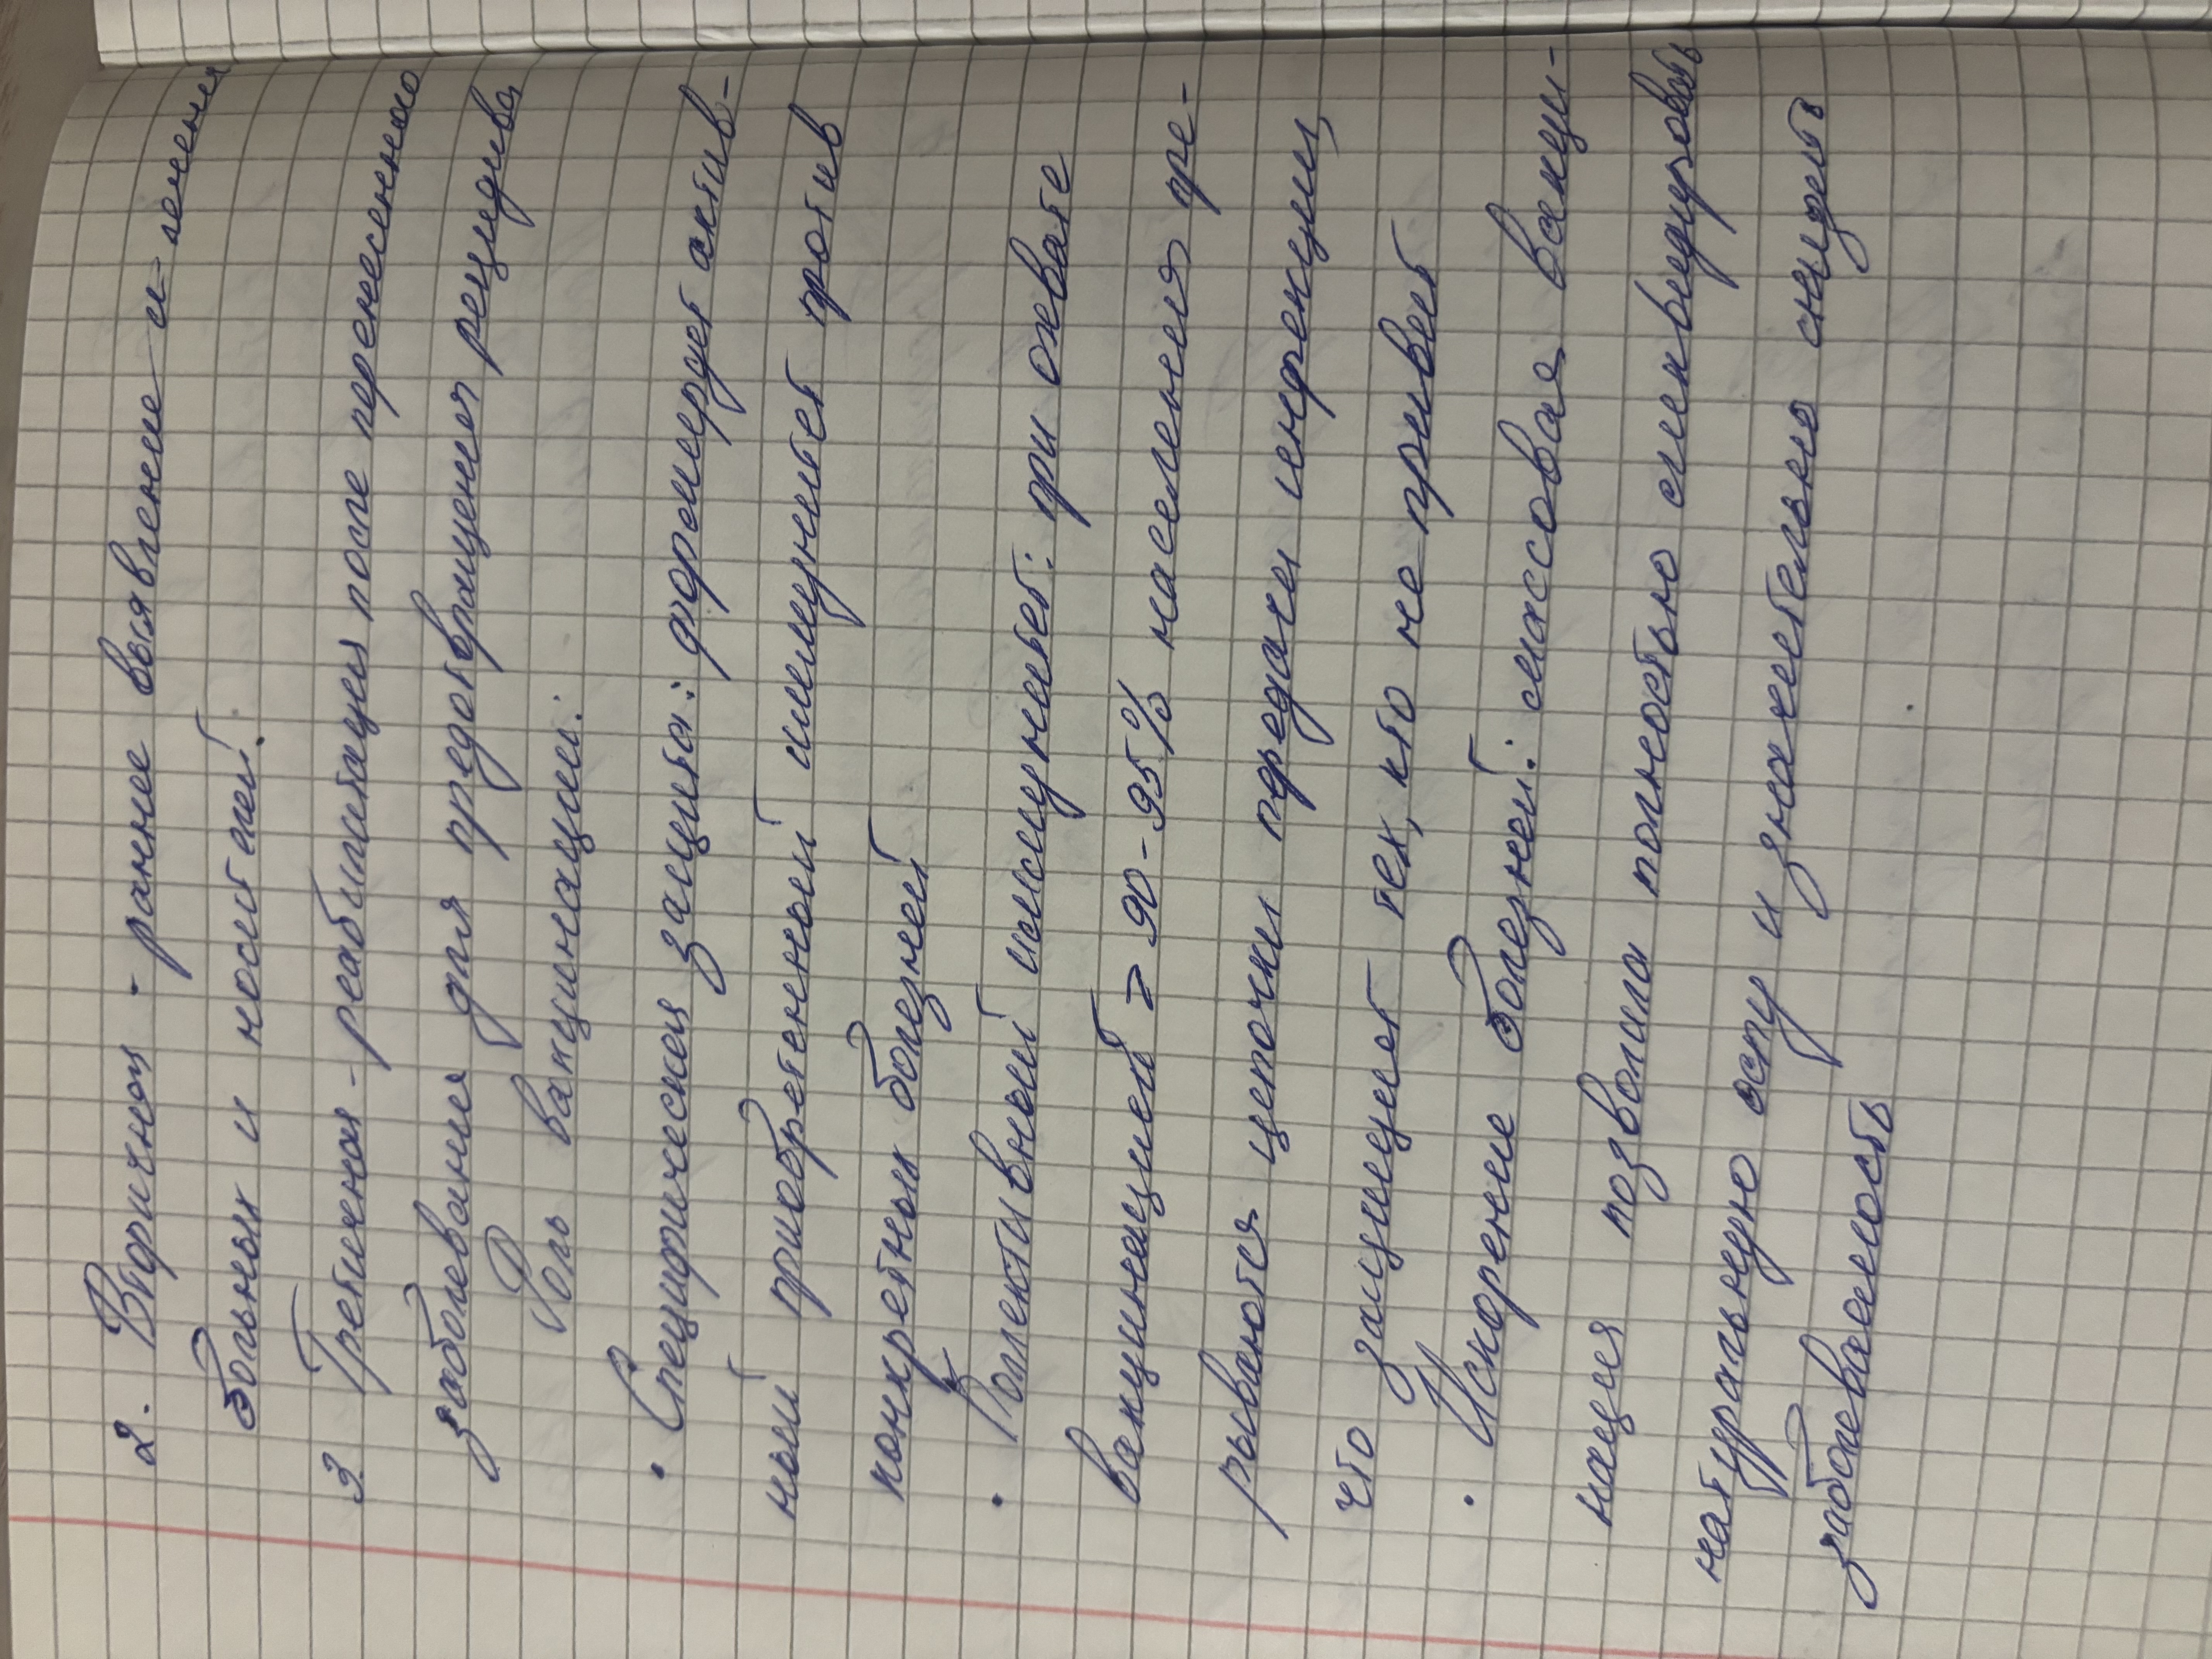 2. Вторичная - раннее выявление и лечения
больных и носителей.
3 Третичная - реабилитация после перенесенного
заболевания для предотвращения рецидива
Роль вакцинации:
• Специфическая защита: формирует актив-
ный приобретенный иммунитет против
конкретных болезней
• Коллективный иммунитет: при охвате
вакцинацией ≥ 90-95% населения пре-
рываются цепочки передачи инфекции,
что защищает тех, кто не привит
• Искоренение болезней: массовая вакци-
нация позволила полностью ликвидировать
натуральную оспу и значительно снизить
заболеваемость